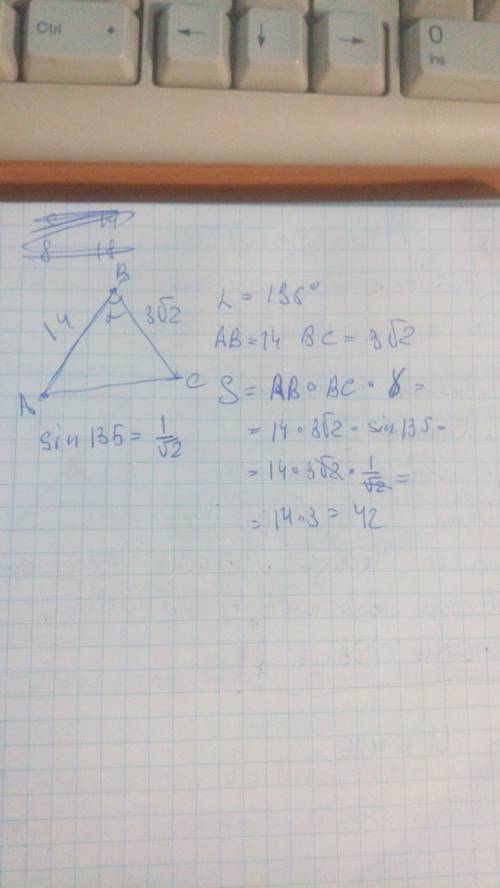 Ctrl
0
Ins
14
8 18
B
14
α
3√2
A
C
sin 135 = 1/√2
α = 135°
AB = 14 BC = 3√2
S = AB · BC · γ =
= 14 · 3√2 · sin 135 =
= 14 · 3√2 · 1/√2 =
= 14 · 3 = 42